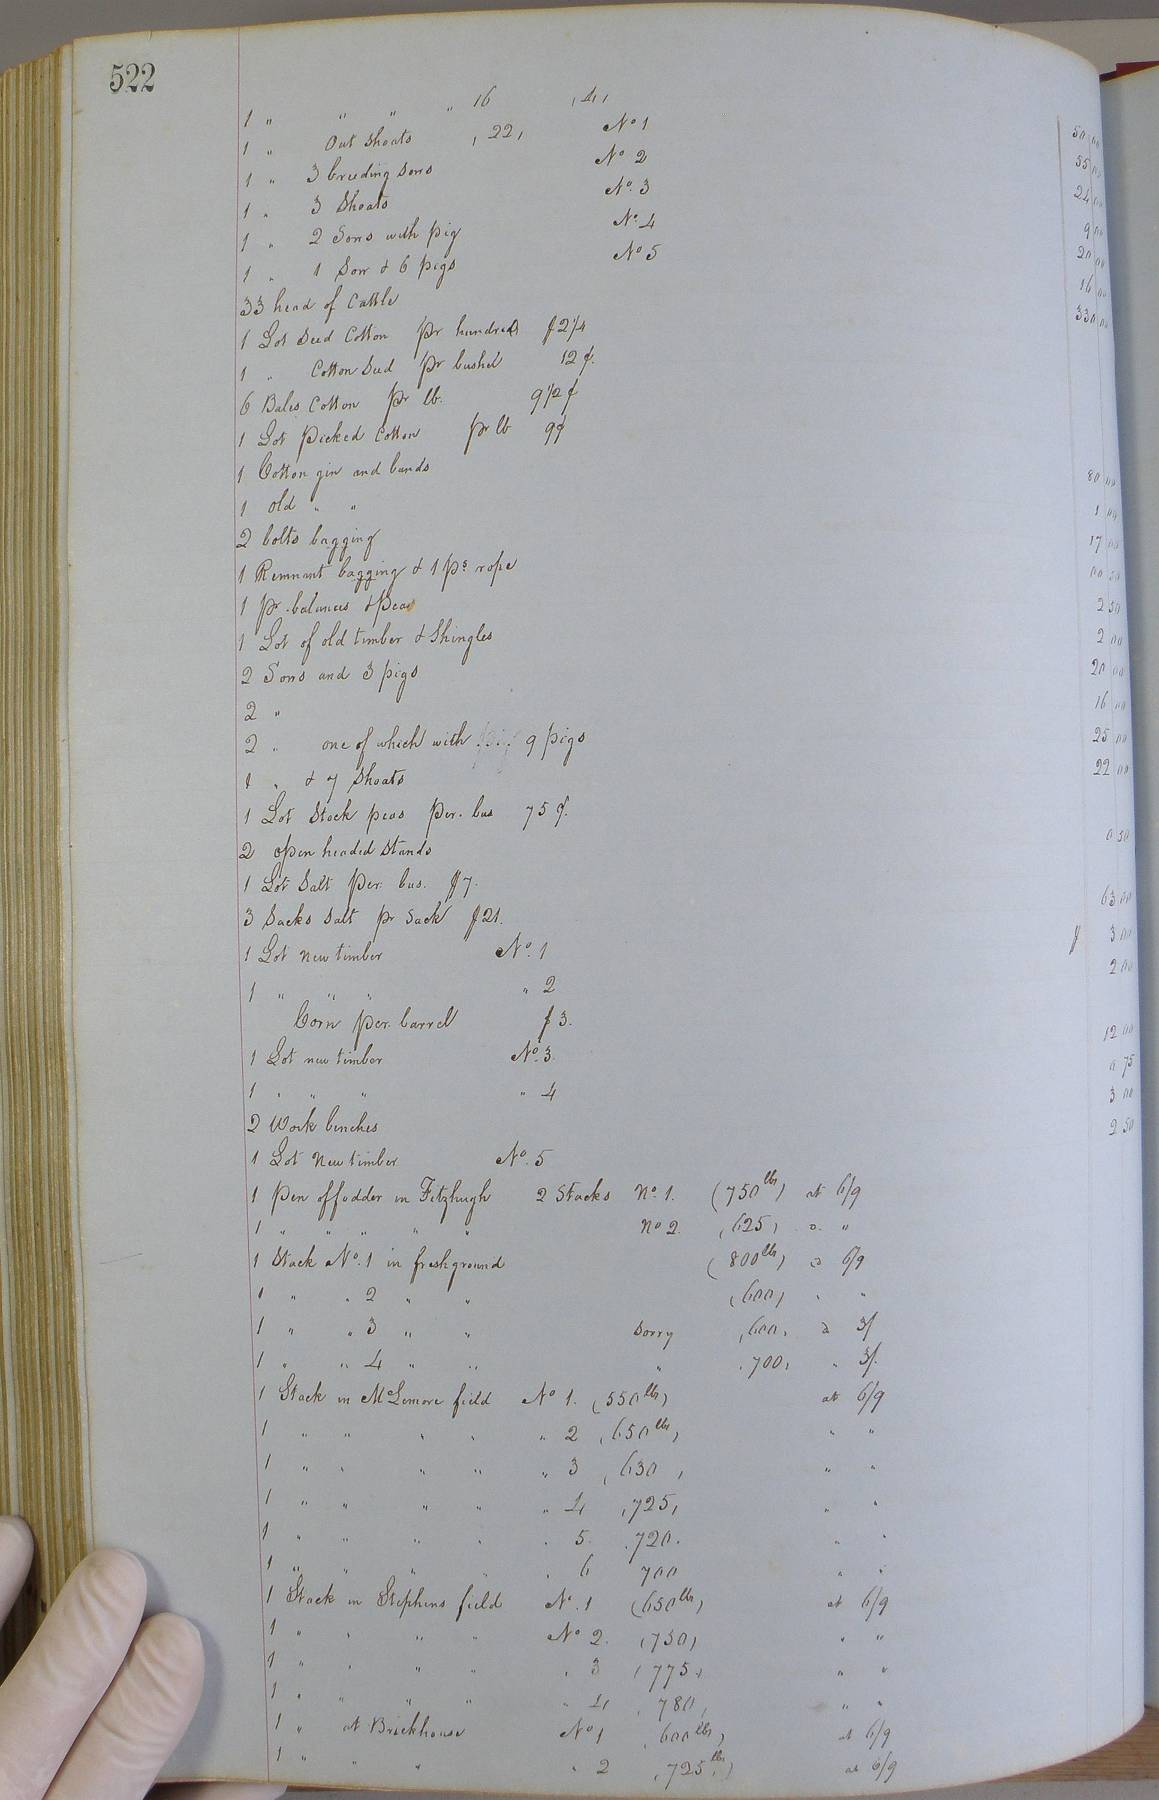 522
1 " " " " 16 (4)
1 " Out Shoats (22) No 1 50 00
1 " 3 breeding Sows No 2 55 00
1 " 3 Shoats No. 3 24 00
1 " 2 Sows with pig No. 4 9 00
1 " 1 Sow & 6 pigs No 5 20 00
33 head of Cattle 16 00
1 Lot Seed Cotton pr hundred $2 1/4 330 00
1 " Cotton Seed pr bushel 12¢.
6 Bales Cotton pr lb. 9 1/2¢
1 Lot picked Cotton pr lb 9¢
1 Cotton gin and bands 80 00
1 old " " 1 00
2 bolts bagging 17 00
1 Remnant bagging & 1 ps rope 00 50
1 pr. balances & peas 2 50
1 Lot of old timber & Shingles 2 00
2 Sows and 3 pigs 20 00
2 " 16 00
2 " one of which with 9 pigs 25 00
1 " & 7 Shoats 22 00
1 Lot Stock peas per. bus 75¢.
2 open headed Stands 0 50
1 Lot Salt per. bus. $7.
3 Sacks Salt pr Sack $21. 63 00
1 Lot new timber No. 1 $ 3 00
1 " " " " 2 2 00
Corn per. barrel $3.
1 Lot new timber No. 3. 12 00
1 " " " " 4 0 75
2 Work benches 3 00
1 Lot New timber No. 5 2 50
1 pen of fodder in Fitzhugh 2 Stacks No. 1. (750 lbs) at 6/9
1 " " " " " No 2. (625) a "
1 Stack No. 1 in freshground (800 lbs) a 6/9
1 " " 2 " " (600) " "
1 " " 3 " " Sorry (600) a 3/
1 " " 4 " " " (700) " 3/.
1 Stack in McLemore field No 1. (550 lbs) at 6/9
1 " " " " " 2 (650 lbs) " "
1 " " " " " 3 (630) " "
1 " " " " " 4 (725) " "
1 " " " " " 5. (720. " "
1 " " " " " 6 700 " "
1 Stack in Stephens field No. 1 (650 lbs) at 6/9
1 " " " " No 2. (750) " "
1 " " " " " 3 (775) " "
1 " " " " " 4 (780) " "
1 " at Brickhouse No 1 (600 lbs) at 6/9
1 " " " " 2 (725 lbs) at 6/9